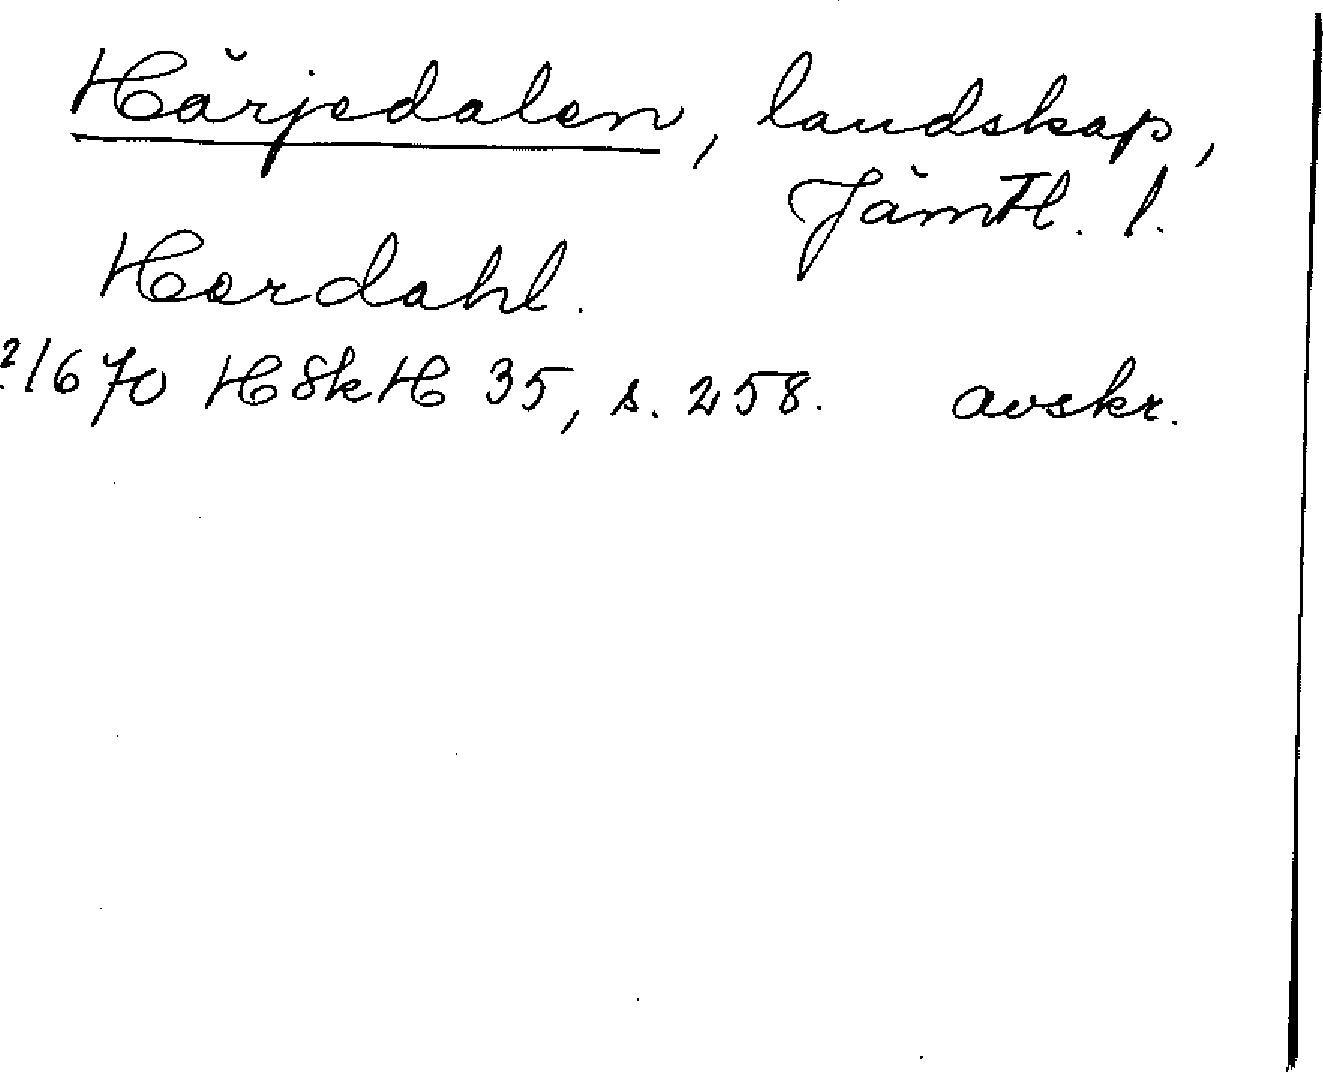 Härjedalen, landskap,
Jämtl. l.
Herdahl.
?1670 HSkH 35, s. 258. avskr.